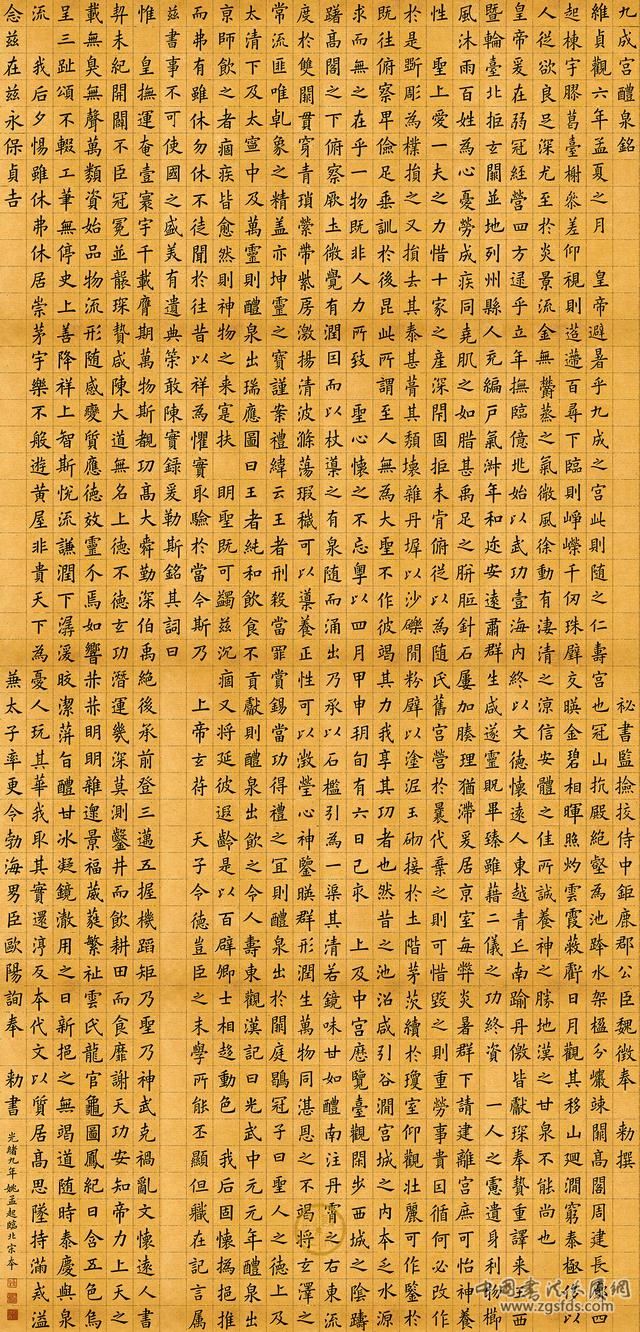 九成宮醴泉銘 秘書監檢挍侍中鉅鹿郡公臣魏徵奉 勅撰
維貞觀六年孟夏之月 皇帝避暑乎九成之宮此則隨之仁壽宮也冠山抗殿絕壑為池跨水架楹分巖竦闕高閣周建長廊四
起棟宇膠葛臺榭叅差仰視則迢遰百尋下臨則崢嶸千仞珠璧交暎金碧相暉照灼雲霞蔽虧日月觀其移山迴澗窮泰極侈以
人從欲良足深尤至於炎景流金無鬱蒸之氣微風徐動有淒清之涼信安體之佳所誠養神之勝地漢之甘泉不能尚也
皇帝爰在弱冠經營四方逮乎立年撫臨億兆始以武功壹海內終以文德懷遠人東越青丘南踰丹儌皆獻琛奉贄重譯來王西
暨輪臺北拒玄闕並地列州縣人充編戶氣淑年和迩安遠肅群生咸遂靈貺畢臻雖藉二儀之功終資 一人之慮遺身利物櫛
風沐雨百姓為心憂勞成疾同堯肌之如腊甚禹足之胼胝針石屢加腠理猶滯爰居京室每弊炎暑群下請建離宮庶可怡神養
性 聖上愛一夫之力惜十家之產深閇固拒未肯俯從以為隨氏舊宮營於曩代棄之則可惜毀之則重勞事貴因循何必改作
於是斲彫為樸損之又損去其泰甚葺其頹壞雜丹墀以沙礫間粉壁以塗泥玉砌接於土階茅茨續於瓊室仰觀壯麗可作鑒於
既往俯察卑儉足垂訓於後昆此所謂至人無為大聖不作彼竭其力我享其功者也然昔之池沼咸引谷澗宮城之內本乏水源
求而無之在乎一物既非人力所致 聖心懷之不忘粵以四月甲申朔旬有六日己亥 上及中宮歷覽臺觀閑步西城之陰躊
躇高閣之下俯察厥土微覺有潤因而以杖導之有泉隨而涌出乃承以石檻引為一渠其清若鏡味甘如醴南注丹霄之右東流
度於雙闕貫穿青瑣縈帶紫房激揚清波滌蕩瑕穢可以導養正性可以澂瑩心神鑒暎群形潤生萬物同湛恩之不竭將玄澤之
常流匪唯乹象之精盖亦坤靈之寶謹案禮緯云王者刑殺當罪賞錫當功得禮之宜則醴泉出於闕庭鶡冠子曰聖人之德上及
太清下及太寧中及萬靈則醴泉出瑞應圖曰王者純和飲食不貢獻則醴泉出飲之令人壽東觀漢記曰光武中元元年醴泉出
京師飲之者痼疾皆愈然則神物之來寔扶 明聖既可蠲茲沉痼又將延彼遐齡是以百辟卿士相趍動色 我后固懷撝挹推
而弗有雖休勿休不徒聞於往昔以祥為懼實取驗於當今斯乃 上帝玄符 天子令德豈臣之末學所能丕顯但職在記言屬
茲書事不可使國之盛美有遺典策敢陳實錄爰勒斯銘其詞曰
惟 皇撫運奄壹寰宇千載膺期萬物斯覩功高大舜勤深伯禹絕後承前登三邁五握機蹈矩乃聖乃神武克禍亂文懷遠人書
契未紀開闢不臣冠冕並襲琛贄咸陳大道無名上德不德玄功潛運幾深莫測鑿井而飲耕田而食靡謝天功安知帝力上天之
載無臭無聲萬類資始品物流形隨感變質應德效靈介焉如響赫赫明明雜遝景福葳蕤繁祉雲氏龍官龜圖鳳紀日含五色烏
呈三趾頌不輟工筆無停史上善降祥上智斯悅流謙潤下潺湲皎潔蓱旨醴甘冰凝鏡澈用之日新挹之無竭道隨時泰慶與泉
流 我后夕惕雖休弗休居崇茅宇樂不般遊黃屋非貴天下為憂人玩其華我取其實還淳反本代文以質居高思墜持滿戒溢
念茲在茲永保貞吉 兼太子率更令勃海男臣歐陽詢奉 勅書
光緒九年姚孟起臨北宋本
中国书法作品欣赏
www.zgsfds.com